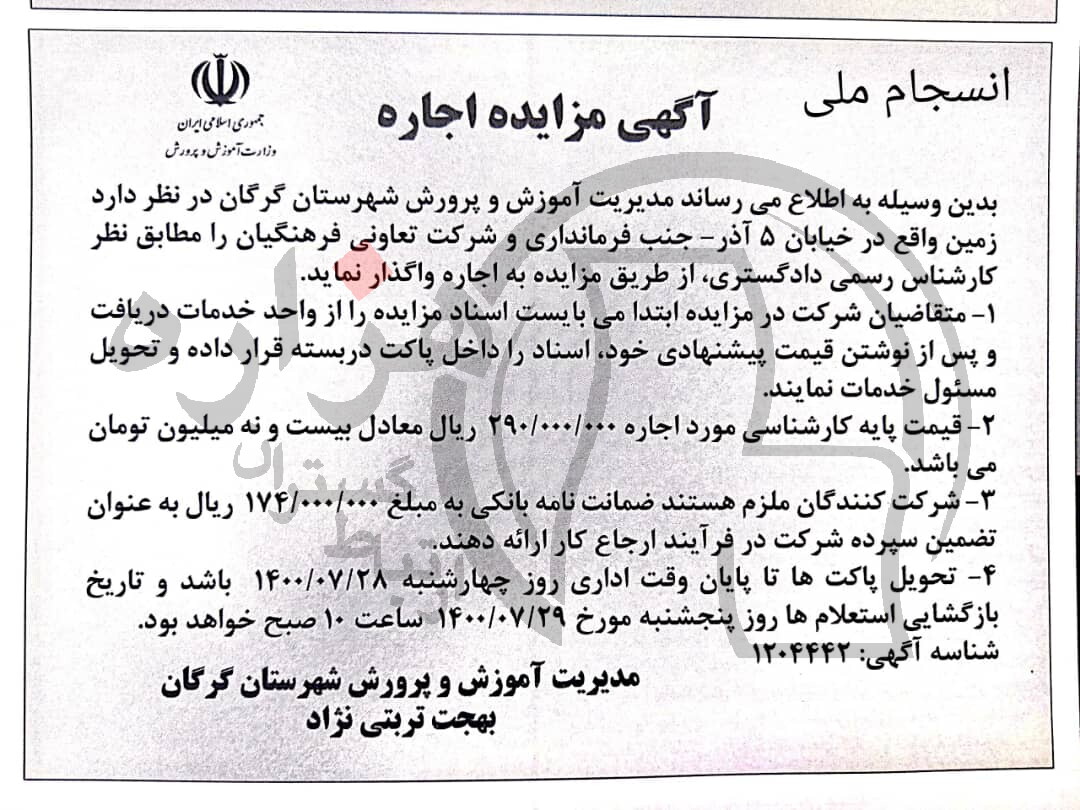 انسجام ملی
آگهی مزایده اجاره
جمهوری اسلامی ایران
وزارت آموزش و پرورش
بدین وسیله به اطلاع می رساند مدیریت آموزش و پرورش شهرستان گرگان در نظر دارد
زمین واقع در خیابان ۵ آذر- جنب فرمانداری و شرکت تعاونی فرهنگیان را مطابق نظر
کارشناس رسمی دادگستری، از طریق مزایده به اجاره واگذار نماید.
۱- متقاضیان شرکت در مزایده ابتدا می بایست اسناد مزایده را از واحد خدمات دریافت
و پس از نوشتن قیمت پیشنهادی خود، اسناد را داخل پاکت دربسته قرار داده و تحویل
مسئول خدمات نمایند.
۲- قیمت پایه کارشناسی مورد اجاره ۲۹۰/۰۰۰/۰۰۰ ریال معادل بیست و نه میلیون تومان
می باشد.
۳- شرکت کنندگان ملزم هستند ضمانت نامه بانکی به مبلغ ۱۷۴/۰۰۰/۰۰۰ ریال به عنوان
تضمین سپرده شرکت در فرآیند ارجاع کار ارائه دهند.
۴- تحویل پاکت ها تا پایان وقت اداری روز چهارشنبه ۱۴۰۰/۰۷/۲۸ باشد و تاریخ
بازگشایی استعلام ها روز پنجشنبه مورخ ۱۴۰۰/۰۷/۲۹ ساعت ۱۰ صبح خواهد بود.
شناسه آگهی: ۱۲۰۴۴۴۲
مدیریت آموزش و پرورش شهرستان گرگان
بهجت تربتی نژاد
هزاره
گستران
ارتباط